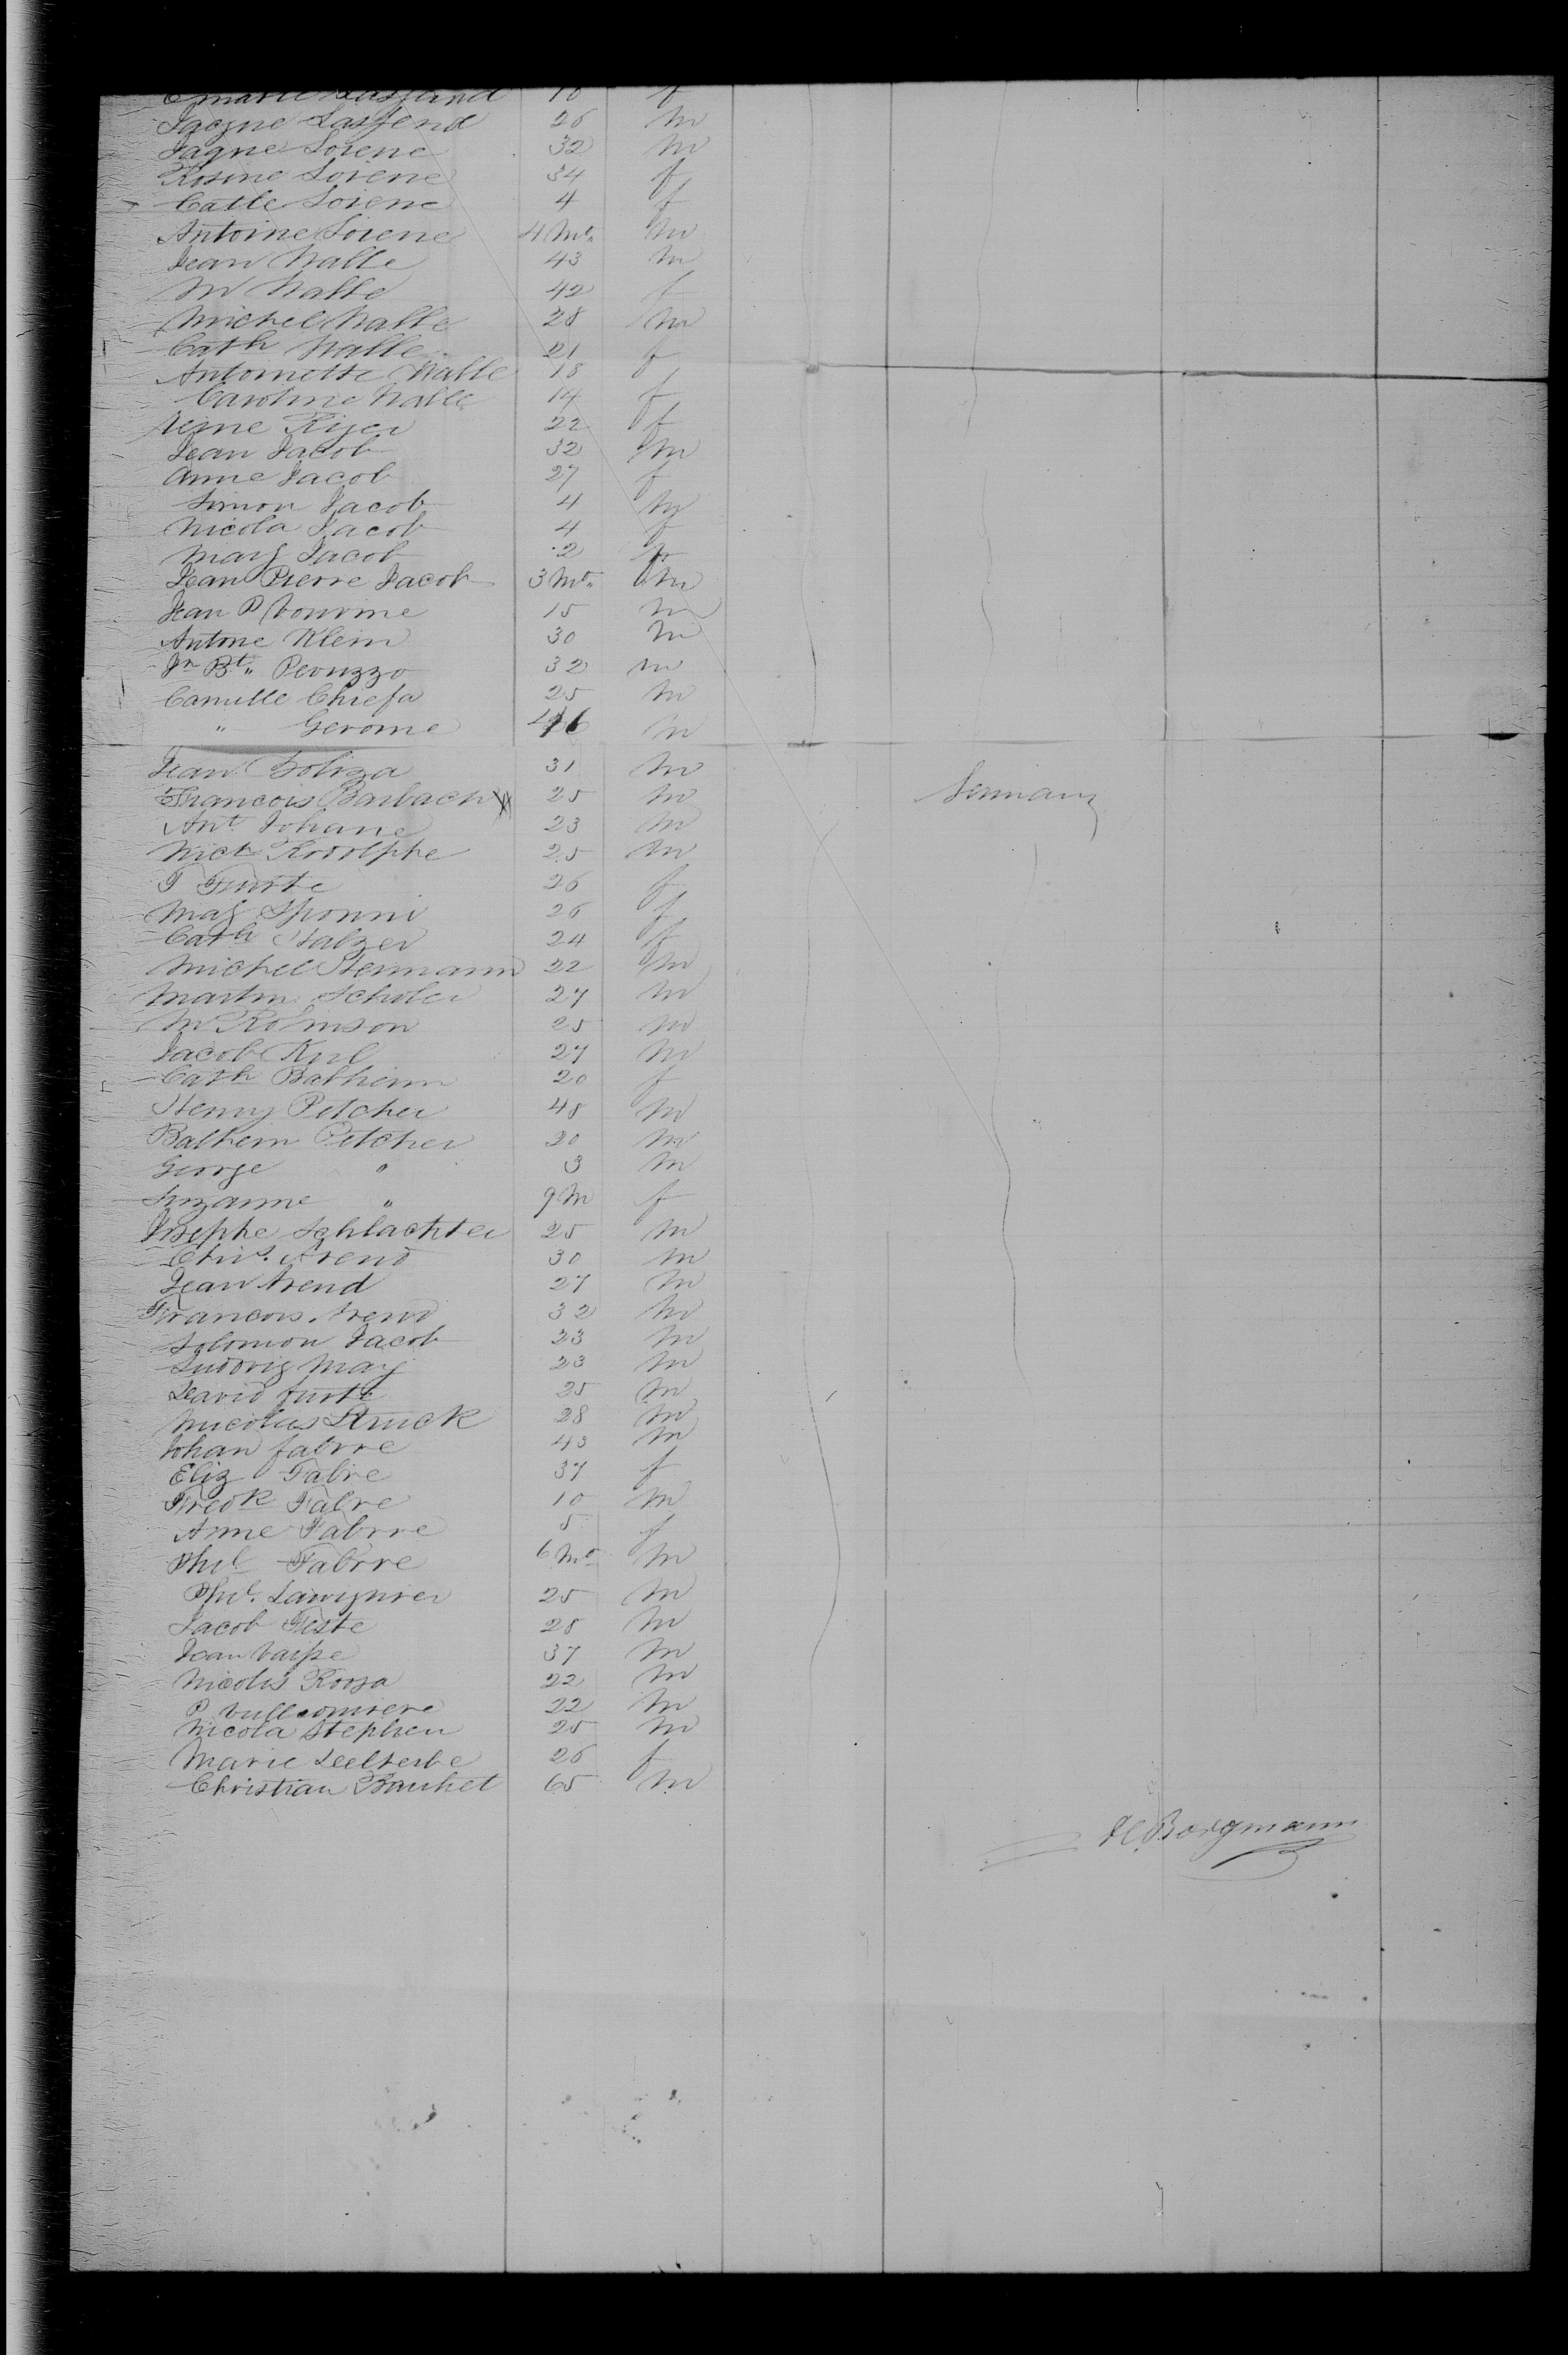 Lassend 10 f
Jacque Lassend 26 m
Jaque Lorene 32 m
Rosine Lorene 34 f
Catte Lorene 4 f
Antoine Lorene 4 Mts. m
Jean Nalle 43 m
M Nalle 42 f
Michel Nalle 28 m
Cath Nalle 21 f
Antoinette Nalle 18 f
Caroline Nalle 14 f
22 f
Jean Jacob 32 m
Anne Jacob 27 f
Simon Jacob 4 m
Nicola Jacob 4 f
Jacob 2
Jean Pierre Jacob 3 Mts. m
Jean P 15 m
Antone Klein 30 m
Jn Bt. Peruzzo 32 m
Camille Chiesa 25 m
" Gerome m
Jean Boliza 31 m
Francois Barbach 25 m Germany
Ant Johane 23 m
Nich Rodolphe 25 m
26 f
Mag Sponni 26 f
Cath Stalzer 24 f
Michel Hermann 22 m
Martin Schuler 27 m
M Robinson 25 m
Jacob 27 m
Cath Balheim 20 f
Henry Pitcher 48 m
Balheim Pitcher 20 m
George " 3 m
Suzanne " 9 M f
Josephe Schlachter 25 m
Arend 30 m
Jean Arend 27 m
Francois Arend 32 m
Solomon Jacob 23 m
Ludovig May 23 m
David Furste 25 m
Nucolas Struck 28 m
Johan Fabrre 43 m
Eliz Fabre 37 f
Fredk Fabre 10 m
Anne Fabrre 5 f
Phil Fabrre 6 Mts m
Phil. 25 m
Jacob Feste 28 m
Jean 37 m
Nicolas 22 m
P 22 m
Nicola Stephen 25 m
Marie 26 f
Christian Bauhet 65 m
H. Borgmann